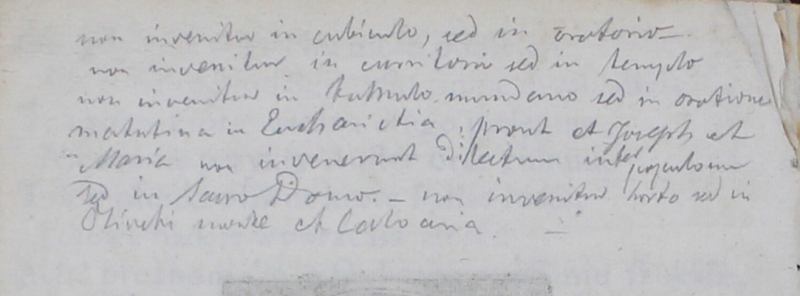 non invenitur in cubiculo, sed in oratorio
non invenitur in sed in templo
non invenitur in mundano sed in oratione
matutina in Eucharistia, prout et Joseph et
Maria non invenerunt dilectum inter populum
sed in Sacro Domo. – non invenitur horto sed in
Oliveti monte et Calvaria. –